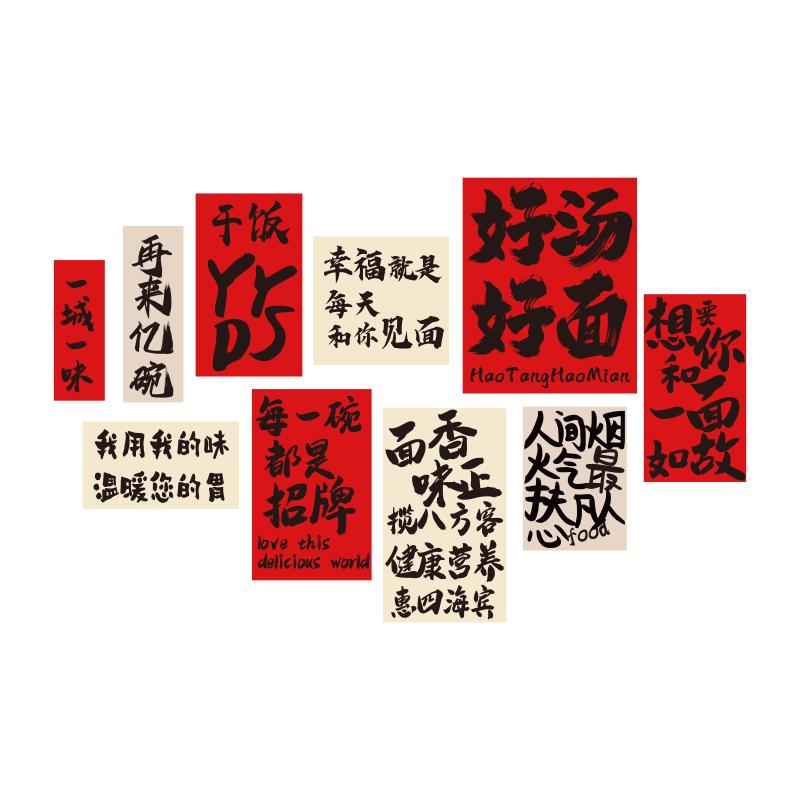 一城一味
再来亿碗
干饭
YY
DS
幸福就是
每天
和你见面
好汤
好面
HaoTangHaoMian
想要你
和
一面
如故
我用我的味
温暖您的胃
每一碗
都是
招牌
love this
delicious world
面香
味正
揽八方客
健康营养
惠四海宾
人间烟
火气最
扶凡人
心food